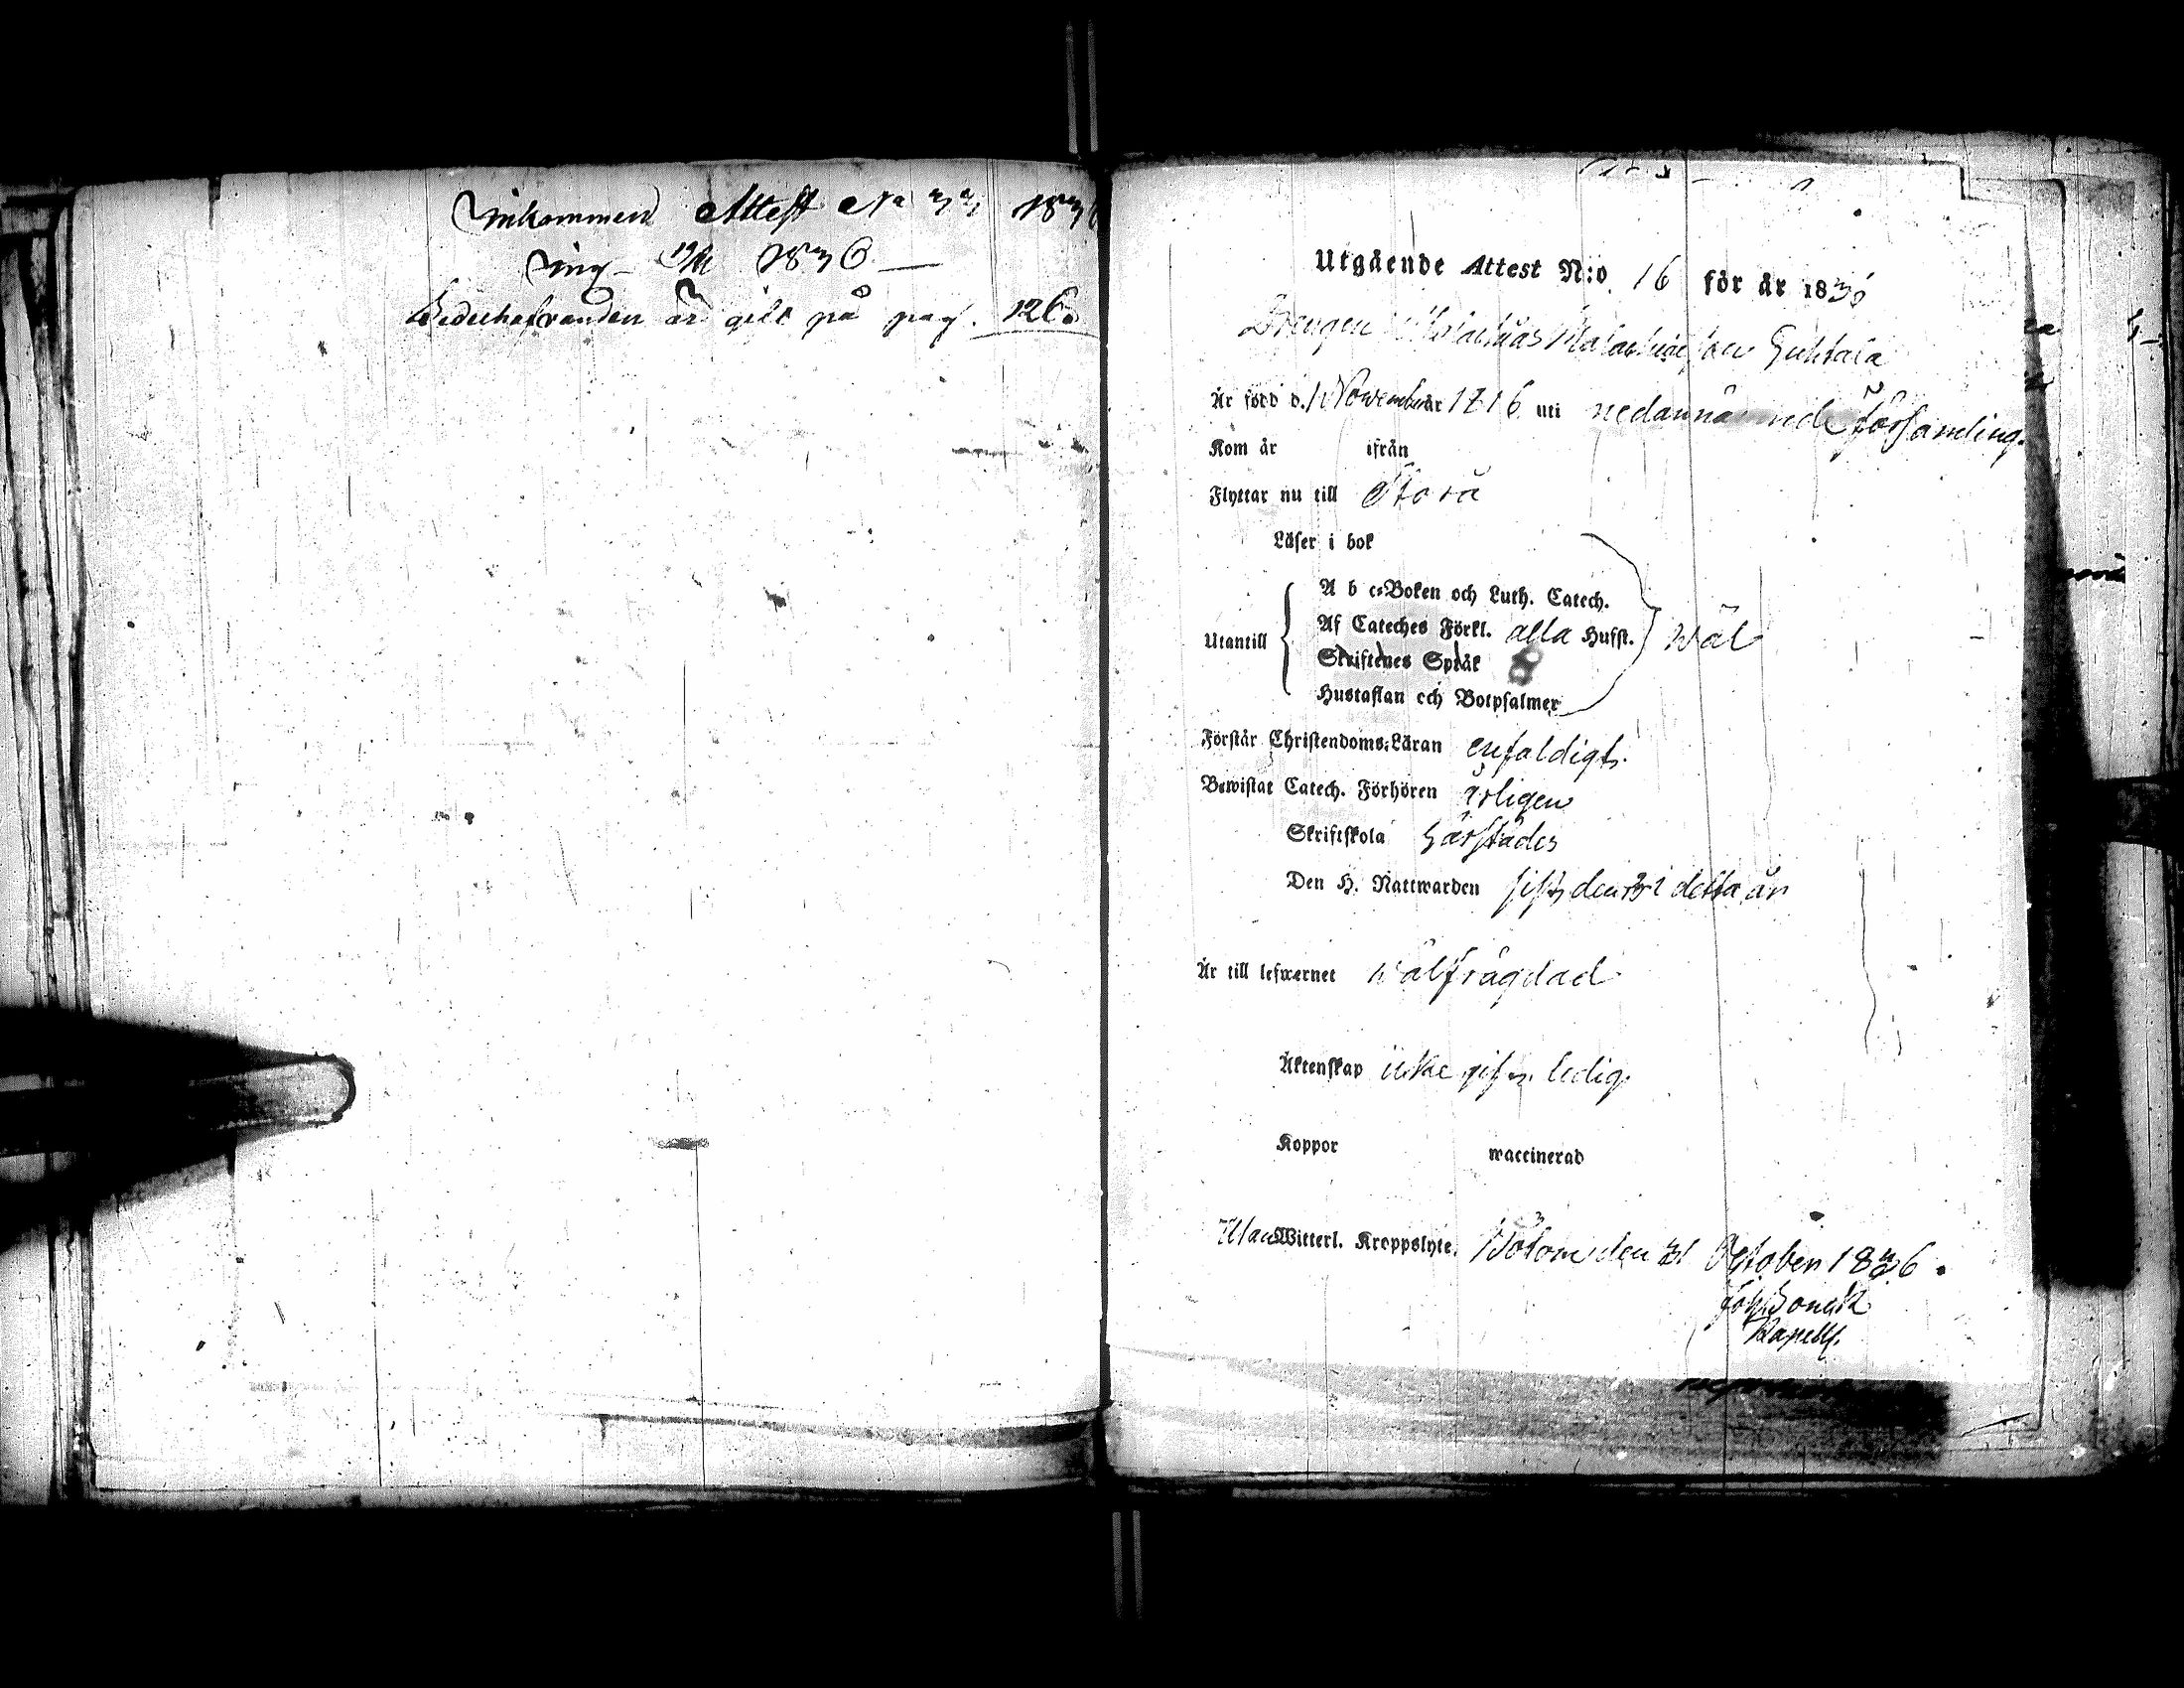 Inkommen Attest No 33 1836
Bedechafvanden är gilt på pag. 126.
Utgående Attest N:o 16 för år 1836
Drengen Malachias Malachiasson
Är född d. 1 November år 1816 uti nedannämnde församling.
Kom år ifrån
Flyttar nu till Storå
Läser i bok
A b c-Boken och Luth. Catech.
Af Cateches Förkl. alla Hufst. wäl
Utantill
Skriftenes Språk
Hustaflan och Botpsalmer
Förstår Christendoms-Läran enfaldigt.
Bewistat Catech. Förhören årligen
Skriftskola härstädes
Den H. Nattwarden sist den i detta år
Är till lefwernet wälfrägdad
Äktenskap icke gift, ledig.
Koppor waccinerad
Utan Witterl. Kroppslyte. den 31 October 1836.
Kapell.